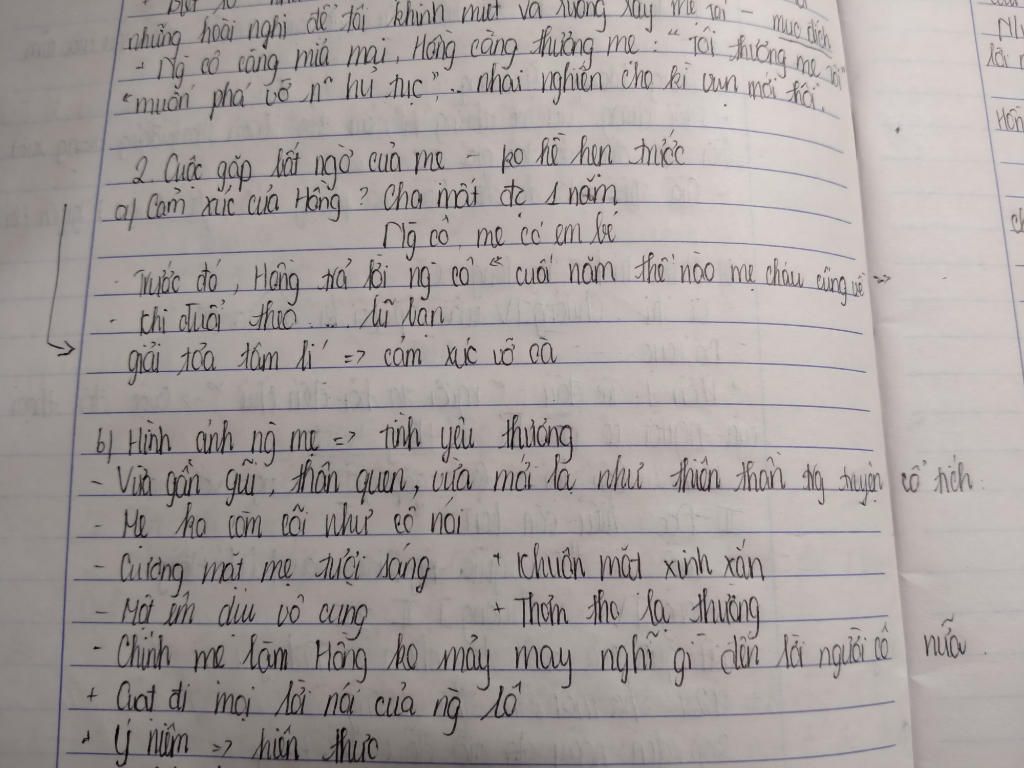 những hoài nghi để tôi khinh miệt và ruồng rẫy mẹ tôi – mục đích
+ Ng cô càng mỉa mai, Hồng càng thương mẹ: "Tôi thương mẹ tôi"
"muốn phá vỡ nº hủ tục",.. nhai nghiến cho kì vụn mới thôi.
2. Cuộc gặp bất ngờ của mẹ – ko hề hẹn trước
a) Cảm xúc của Hồng? Cha mất đc 1 năm
Ng cô, mẹ có em bé
- Trước đó, Hồng trả lời ng cô " cuối năm thế nào mẹ cháu cũng về "
- Khi đuổi theo ... lũ bạn
giải tỏa tâm lí => cảm xúc vỡ oà
b) Hình ảnh ng mẹ => tình yêu thương
- Vừa gần gũi, thân quen, vừa mới lạ như thiên thần trg truyện cổ tích.
- Mẹ ko còm cõi như cô nói
- Gương mặt mẹ tươi sáng + Khuôn mặt xinh xắn
- Một êm dịu vô cùng + Thơm tho lạ thường
- Chính mẹ làm Hồng ko mảy may nghĩ gì đến lời người cô nữa.
+ Gạt đi mọi lời nói của ng cô
+ Ý niệm => hiện thực